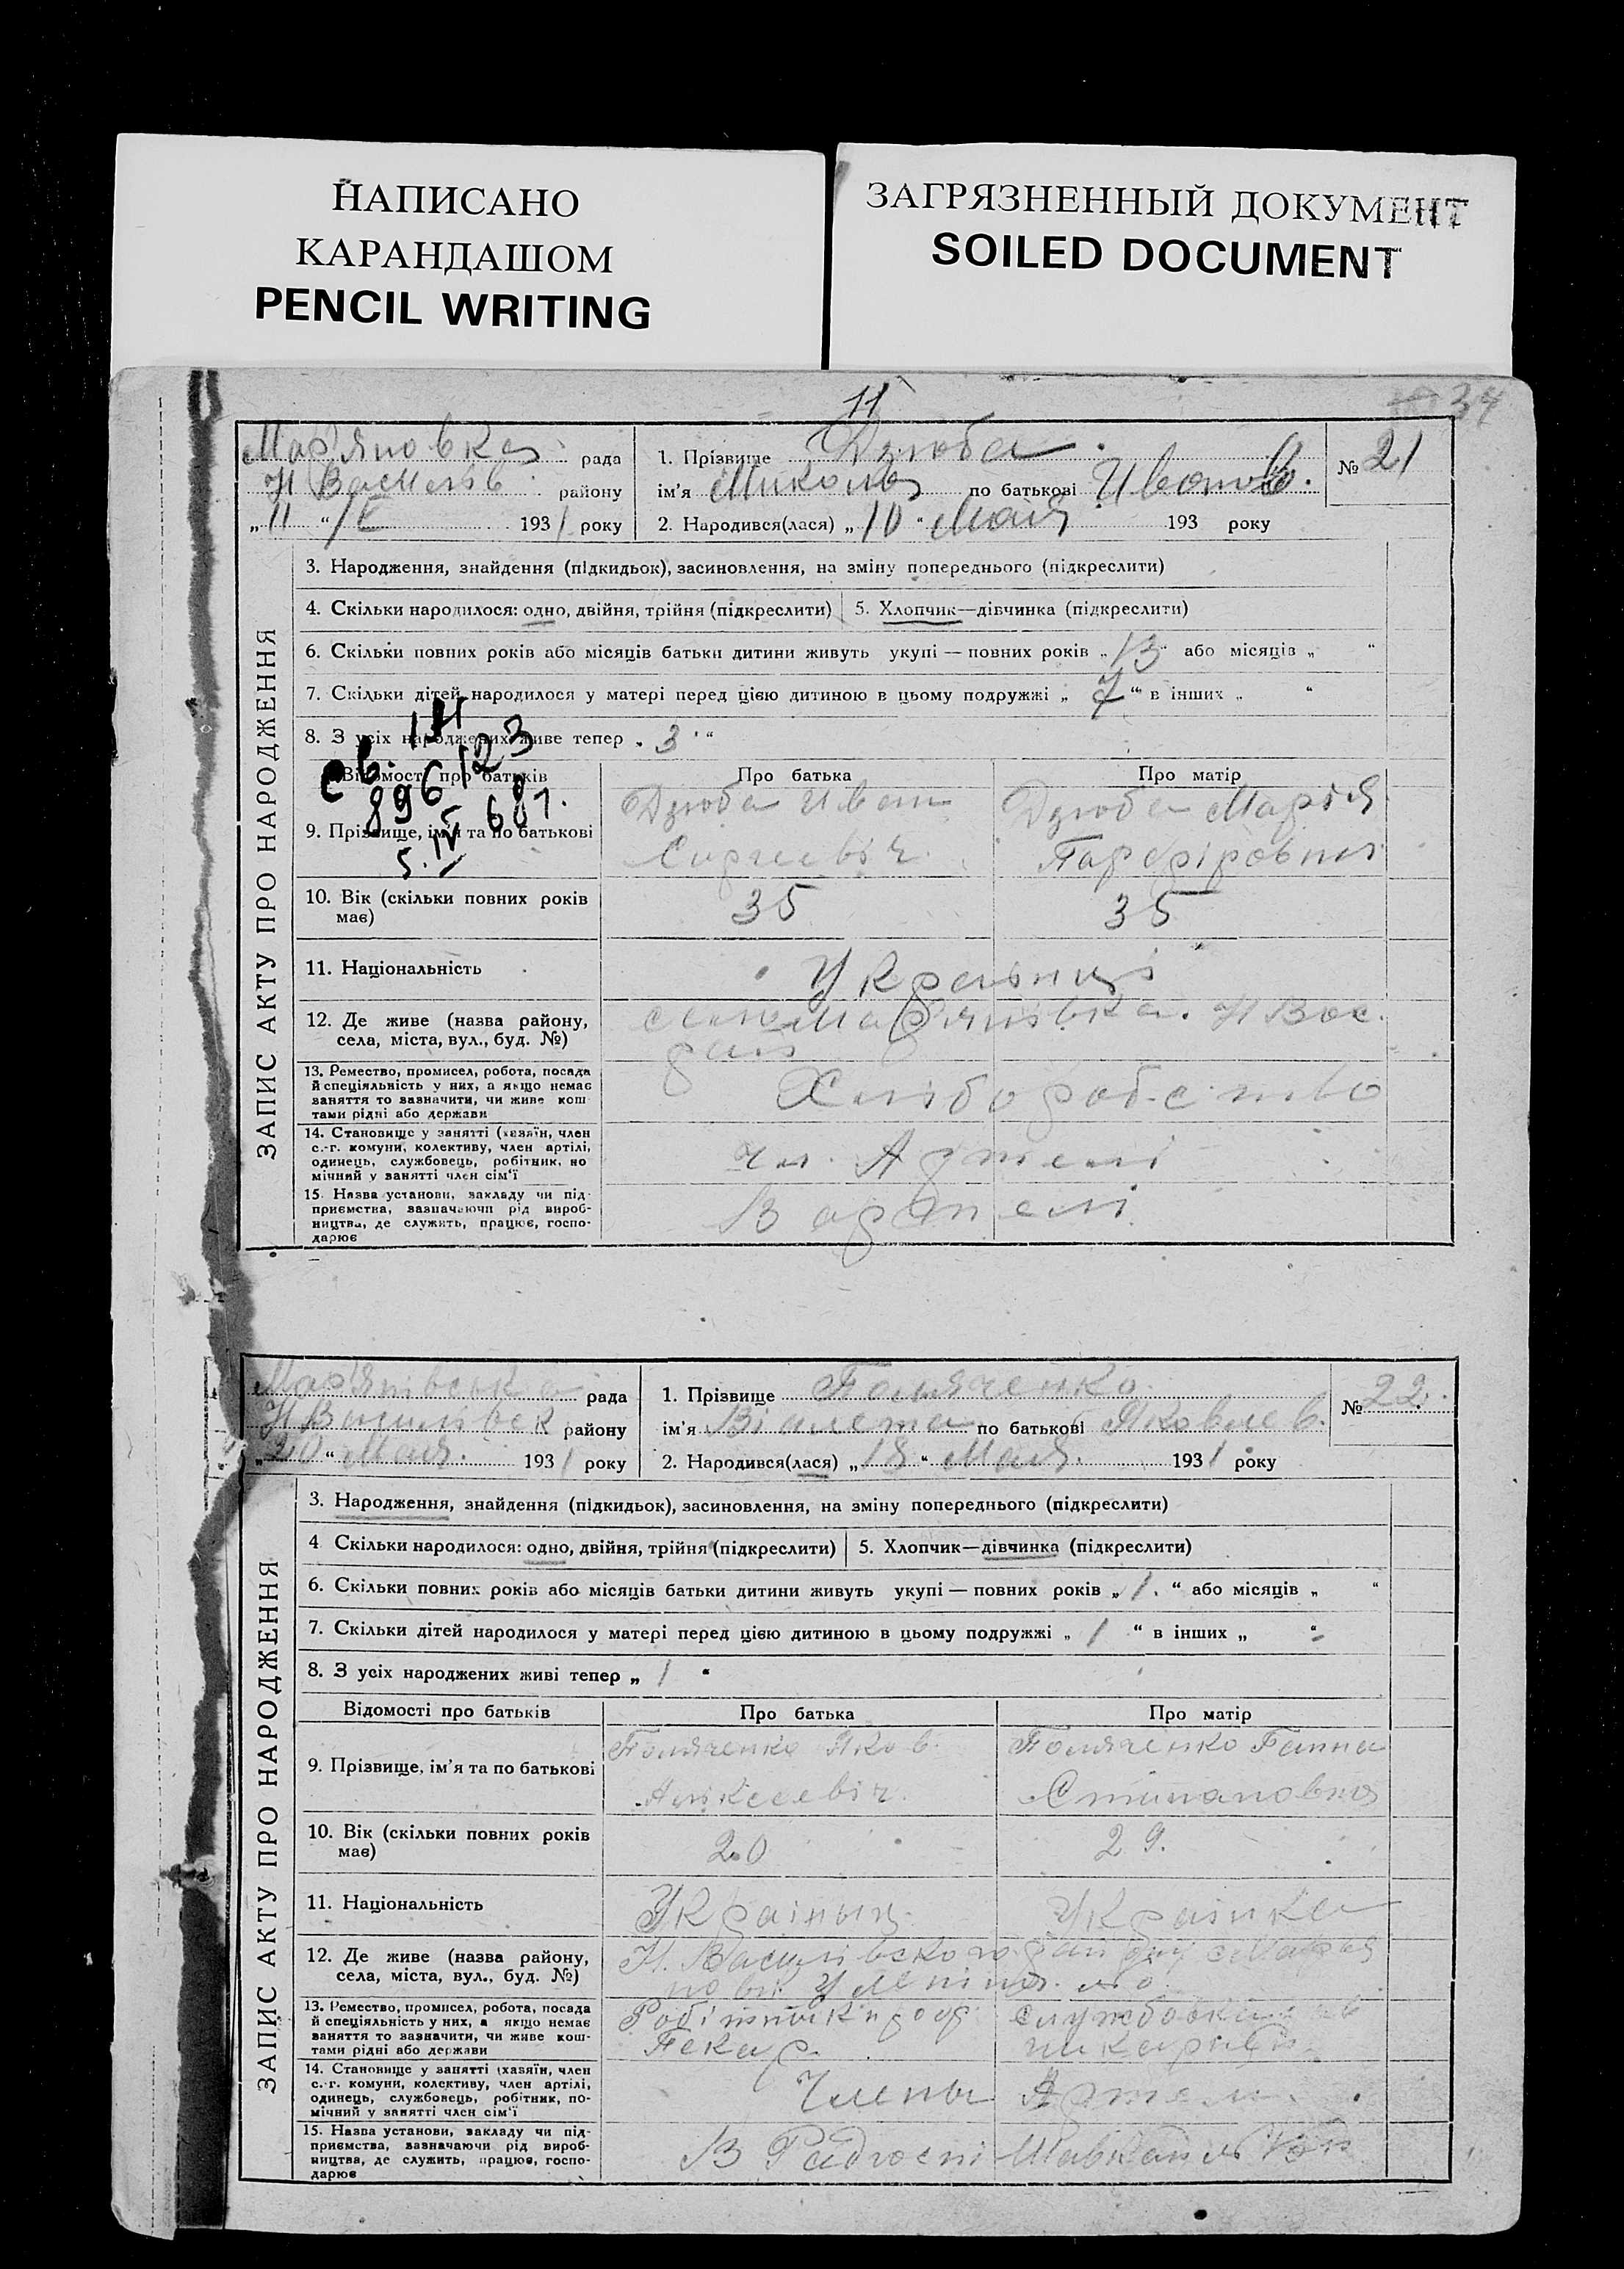 НАПИСАНО
КАРАНДАШОМ
PENCIL WRITING
ЗАГРЯЗНЕННЫЙ ДОКУМЕНТ
SOILED DOCUMENT
11
34
Мар'яновка рада
Н Василів району
„11“ 1931 року
1. Прізвище Дзюба
ім'я Микола по батькові Иванов.
2. Народився(лася) „10“ Мая 193 року
№ 21
ЗАПИС АКТУ ПРО НАРОДЖЕННЯ
3. Народження, знайдення (підкидьок), засиновлення, на зміну попереднього (підкреслити)
4. Скільки народилося: одно, двійня, трійня (підкреслити) 5. Хлопчик—дівчинка (підкреслити)
6. Скільки повних років або місяців батьки дитини живуть укупі — повних років „13“ або місяців „ “
7. Скільки дітей народилося у матері перед цією дитиною в цьому подружжі „ “ в інших „ “
8. З усіх народжених живе тепер „3“
св. 1Я
896123
5.IV 68г.
Відомості про батьків Про батька Про матір
9. Прізвище, ім'я та по батькові
Дзюба Иван
Дзюба Марія
10. Вік (скільки повних років має) 35 35
11. Національність Українці
12. Де живе (назва району, села, міста, вул., буд. №)
Мар'янівка. Н Вас.
рай
13. Ремество, промисел, робота, посада
й спеціяльність у них, а якщо немає
заняття то зазначити, чи живе кош
тами рідні або держави
Хліборобство
14. Становище у занятті (хазяїн, член
с.-г. комуни, колективу, член артілі,
одинець, службовець, робітник, по
мічний у занятті член сім'ї
чл. Артелі
15. Назва установи, закладу чи під-
приємства, зазначаючи рід вироб-
ництва, де служить, працює, госпо-
дарює
В артелі
Мар'янівська рада
Н Василівск району
„20“ Мая. 1931 року
1. Прізвище
ім'я Віалета по батькові Яковлев.
2. Народився(лася) „18“ Мая. 1931 року
№ 22.
ЗАПИС АКТУ ПРО НАРОДЖЕННЯ
3. Народження, знайдення (підкидьок), засиновлення, на зміну попереднього (підкреслити)
4 Скільки народилося: одно, двійня, трійня (підкреслити) 5. Хлопчик—дівчинка (підкреслити)
6. Скільки повних років або місяців батьки дитини живуть укупі — повних років „1.“ або місяців „ “
7. Скільки дітей народилося у матері перед цією дитиною в цьому подружжі „1“ в інших „ “
8. З усіх народжених живі тепер „1“
Відомості про батьків Про батька Про матір
9. Прізвище, ім'я та по батькові
Яков.
Ганна
Аліксеевіч.
Стипановна
10. Вік (скільки повних років має) 20 29.
11. Національність Українка
12. Де живе (назва району, села, міста, вул., буд. №)
Н. Василівского
13. Ремество, промисел, робота, посада
й спеціяльність у них, а якщо немає
заняття то зазначити, чи живе кош-
тами рідні або держави
Робітник
Пекар.
14. Становище у занятті (хазяїн, член
с.-г. комуни, колективу, член артілі,
одинець, службовець, робітник, по-
мічний у занятті член сім'ї
Члены Артели
15. Назва установи, закладу чи під-
приємства, зазначаючи рід вироб-
ництва, де служить, працює, госпо-
дарює
В Радгоспі